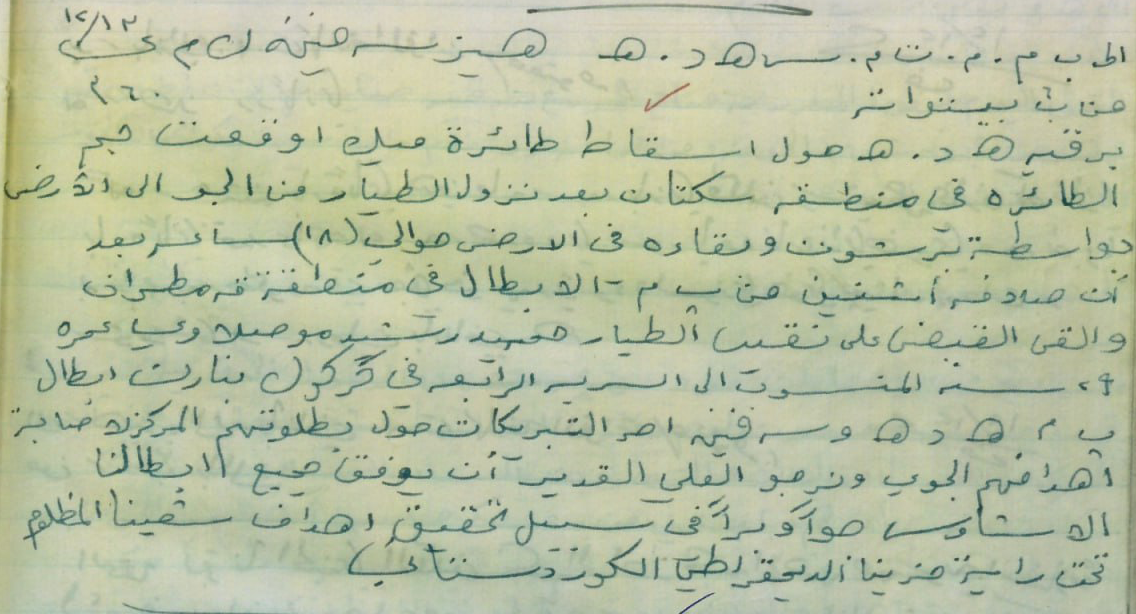 الى ب م . م . ت م . س هـ د . هـ هيز سه فين ل م ع ١٢/١٣
من ب بيتواته ٣٦٠
برقيه هـ د . هـ حول اسقاط طائرة ميك اوقعت حجم
الطائره في منطقه سكتان بعد نزول الطيار من الجو الى الأرض
بواسطة برشوت وبقاءه في الارض حوالي (١٨) ساعه بعد
أن صادفه أثنين من ب م - الابطال في منطقة
والقى القبض على نقيب الطيار حميد رشيد موصلا وعمره
٢٩ سنه المنسوب الى السريه الرابعه في كركوك نبارك ابطال
ب م هـ د هـ وسه فين احر التبريكات حول بطلوتهم المركزة
أهدافهم الجوي ونرجو العلي القدير أن يوفق جميع ابطالنا
الاشاوس جواً وبراً في سبيل تحقيق اهداف شعبنا المظلوم
تحت راية حزبنا الديمقراطي الكوردستاني